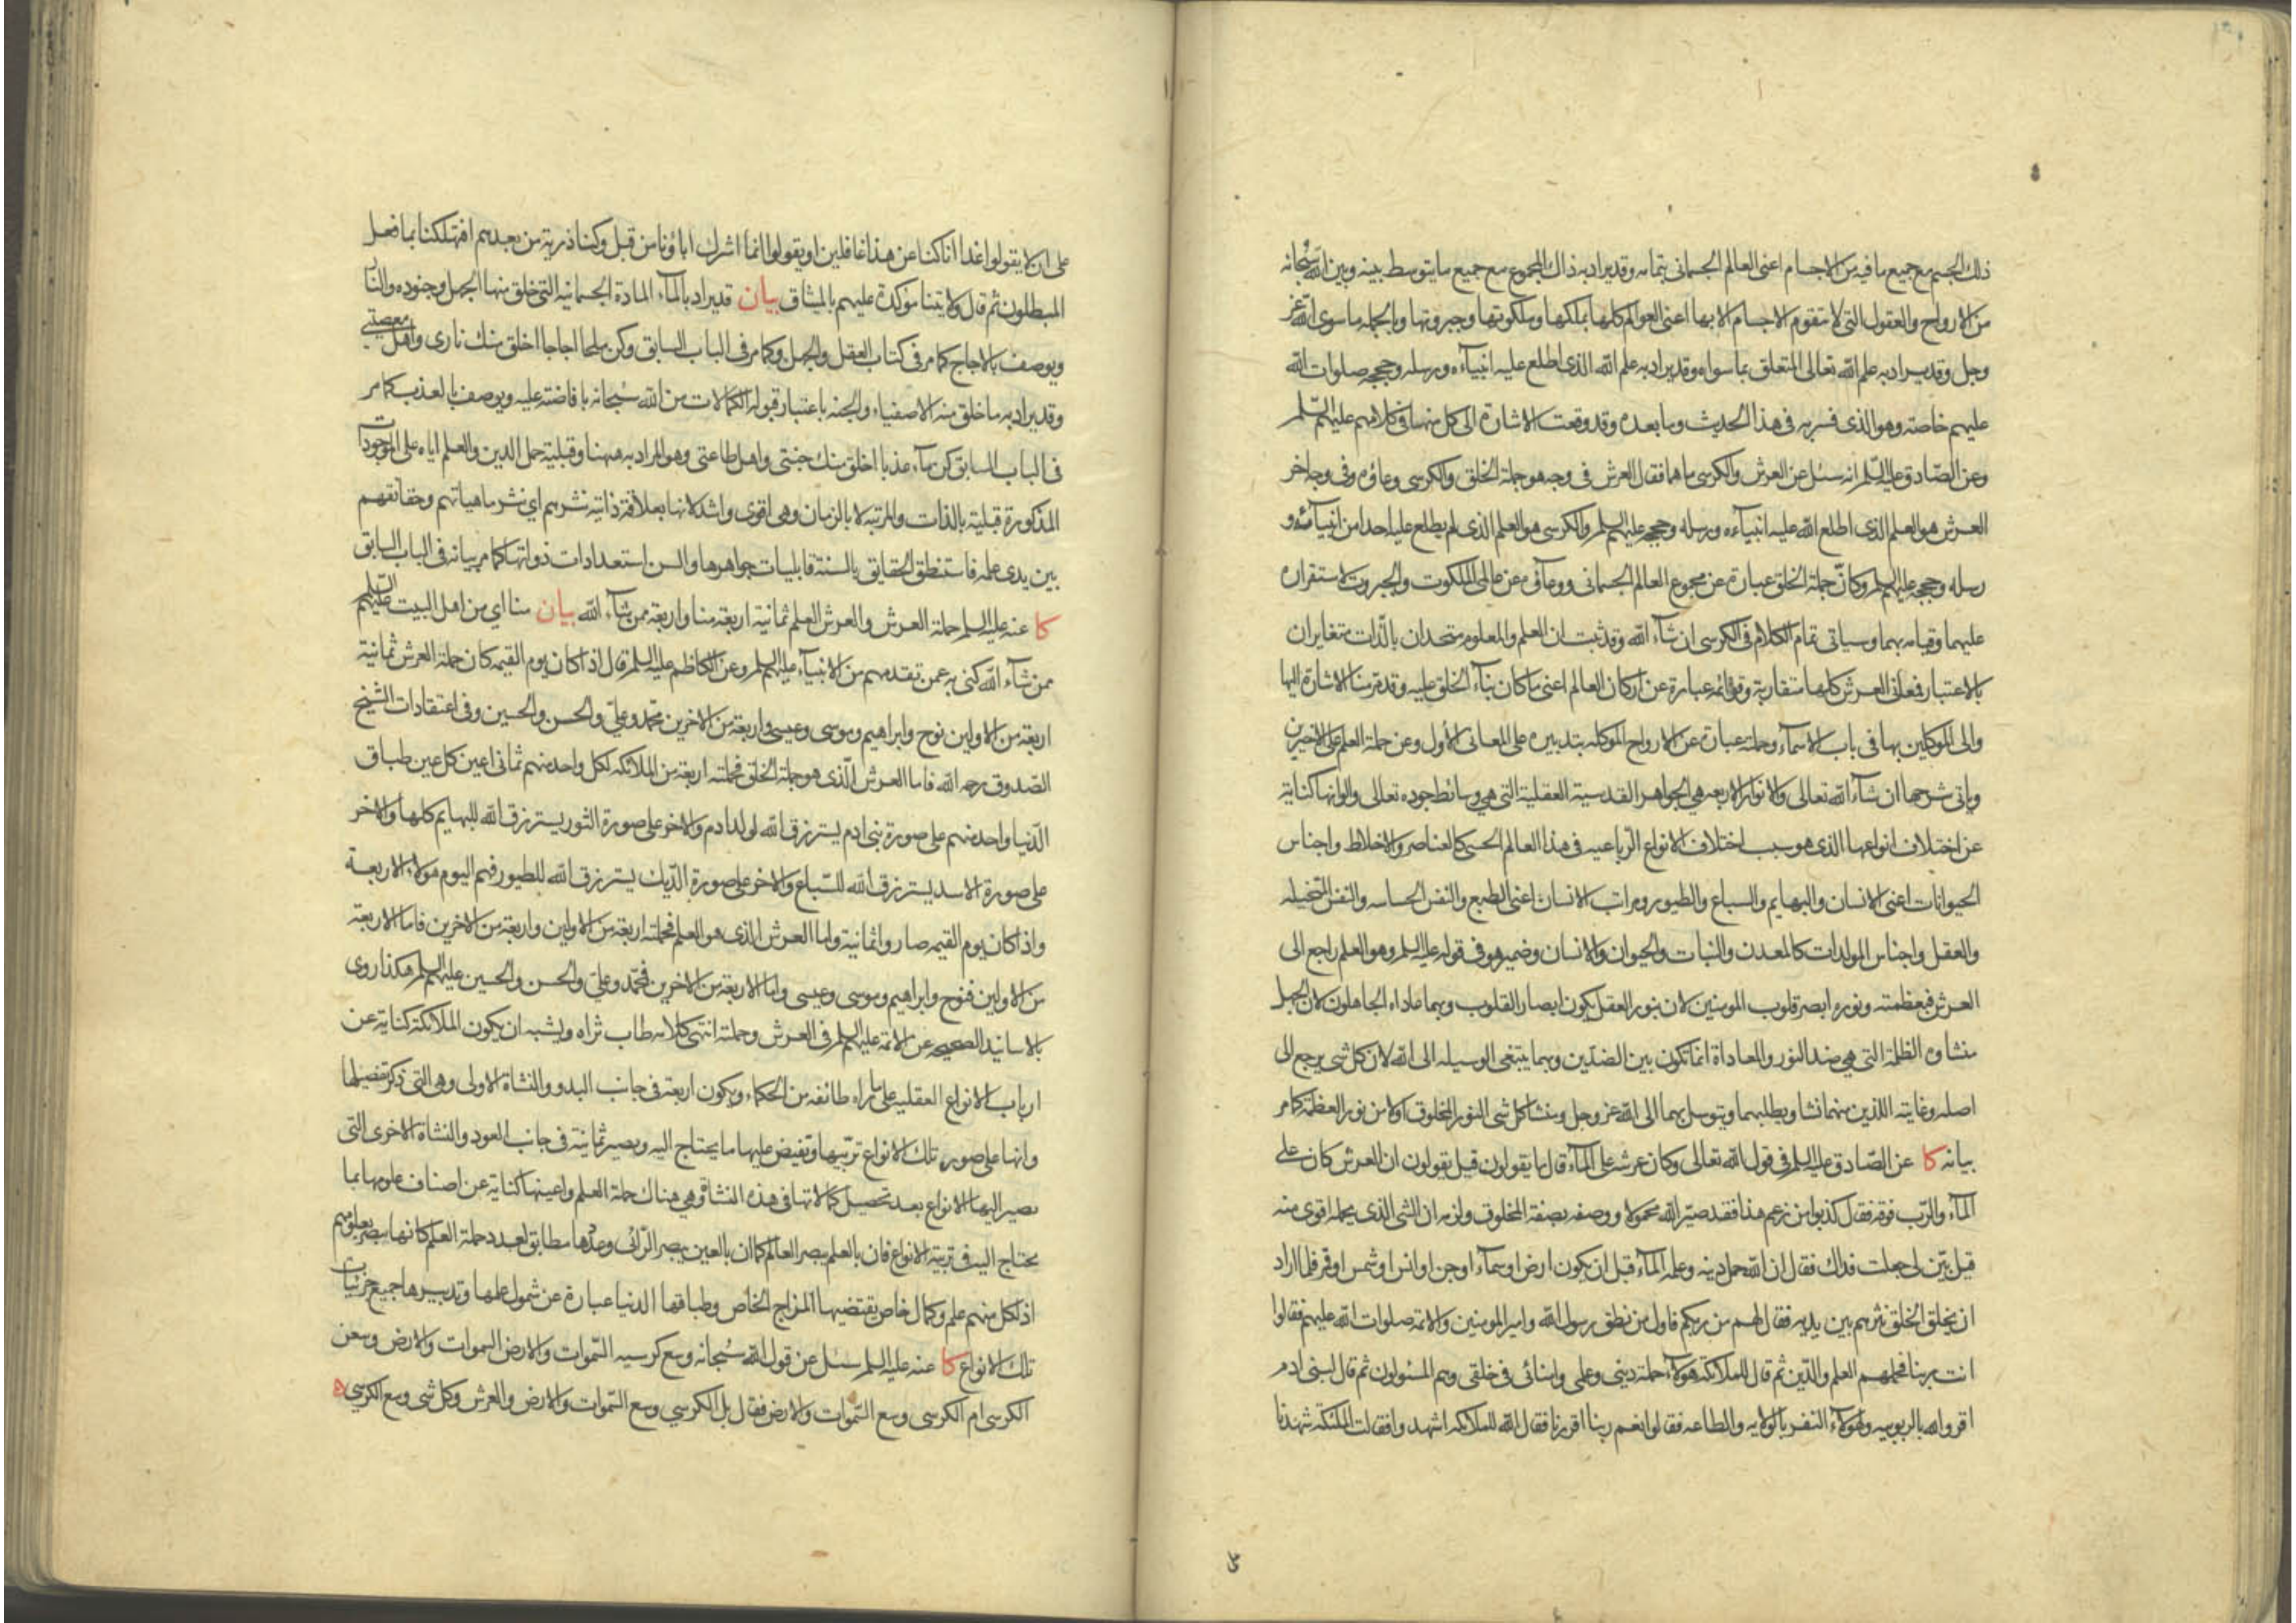 ذلك الجسم مع جميع ما فيه من الاجسام اعنى العالم الجسمانى بتمامه وقد يراد به ذاك المجموع مع جميع ما يتوسط بينه وبين الله سبحانه
من الارواح والعقول التى لا تتقوم الاجسام الا بها اعنى العوالم كلها بملكها وملكوتها وجبروتها وبالجمله ما سوى الله عز
وجل وقد يراد به علم الله تعالى المتعلق بما سواه وقد يراد به علم الله الذى اطلع عليه انبياءه ورسله وحججه صلوات الله
عليهم خاصته وهو الذى فسر به فى هذا الحديث وما بعده وقد وقعت الاشارة الى كل منها فى كلامهم عليهم السلم
وعن الصادق عليه السلم انه سئل عن العرش والكرسى ما هما فقال العرش فى وجه هو جملة الخلق والكرسى وعاؤه وفى وجه اخر
العرش هو العلم الذى اطلع الله عليه انبياءه ورسله وحججه عليهم السلم والكرسى هو العلم الذى لم يطلع عليه احدا من انبيائه و
رسله وحججه عليهم السلم وكان جملة الخلق عبارة عن مجموع العالم الجسمانى ووعاؤه عن عالمى الملكوت والجبروت لاستقراره
عليهما وقيامه بهما وسياتى تمام الكلام فى الكرسى ان شاء الله وقد ثبت ان العلم والمعلوم متحدان بالذات متغايران
بالاعتبار فمعانى العرش كلها متقاربة وقوائمه عبارة عن اركان العالم اعنى ما كان بناء الخلق عليه وقد مر منا الاشارة اليها
والى الموكلين بها فى باب الاسماء وحملته عبارة عن الارواح الموكله بتدبيره على المعانى الاول وعن حملة العلم على الاخيرين
وياتى شرحها ان شاء الله تعالى والانوار الاربعه هى الجواهر القدسية العقلية التى هى وسائط جوده تعالى والوانها كناية
عن اختلاف انواعها الذى هو سبب اختلاف الانواع الرباعيه فى هذا العالم الحسى كالعناصر والاخلاط واجناس
الحيوانات اعنى الانسان والبهايم والسباع والطيور ومراتب الانسان اعنى الطبع والنفس الحساسه والنفس المتخيله
والعقل واجناس المولدات كالمعدن والنبات والحيوان والانسان وضمير هو فى قوله عليه السلم وهو العلم راجع الى
العرش فبعظمته ونوره ابصر قلوب المومنين لان بنور العقل يكون ابصار القلوب وبهما عاداه الجاهلون لان الجهل
منشاؤه الظلمة التى هى ضد النور والمعاداة انما تكون بين الضدين وبهما يبتغى الوسيله الى الله لان كل شى يرجع الى
اصله وغايته اللذين منهما نشا ويطلبهما ويتوسل بهما الى الله عز وجل ومنشا كل شى النور المخلوق اولا من نور العظمة كما مر
بيانه كا عن الصادق عليه السلم فى قول الله تعالى وكان عرشه على الماء قال ما يقولون قيل يقولون ان العرش كان على
الماء والرب فوقه فقال كذبوا من زعم هذا فقد صير الله محمولا ووصفه بصفة المخلوق ولزمه ان الشى الذى يحمله اقوى منه
قيل بين لى جعلت فداك فقال ان الله حمل دينه وعلمه الماء قبل ان يكون ارض او سماء او جن او انس او شمس او قمر فلما اراد
ان يخلق الخلق نثرهم بين يديه فقال لهم من ربكم فاول من نطق رسول الله وامير المومنين والائمه صلوات الله عليهم فقالوا
انت ربنا فحملهم العلم والدين ثم قال للملائكة هولاء حملة دينى وعلمى وامنائى فى خلقى وهم المسئولون ثم قال لبنى ادم
اقروا لله بالربوبيه ولهولاء النفر بالولايه والطاعه فقالوا نعم ربنا اقررنا فقال الله للملائكه اشهدوا فقالت الملئكة شهدنا
على ان لا يقولوا غدا انا كنا عن هذا غافلين او يقولوا انما اشرك اباؤنا من قبل وكنا ذرية من بعدهم افتهلكنا بما فعل
المبطلون ثم قال ولايتنا موكدة عليهم بالميثاق بيان قد يراد بالماء المادة الجسمانيه التى خلق منها الجهل وجنوده والنار
ويوصف بالاجاج كما مر فى كتاب العقل والجهل وكما مر فى الباب السابق وكن ملحا اجاجا اخلق منك نارى واهل معصيتى
وقد يراد به ما خلق منه الاصفياء والجنه باعتبار قبوله الكمالات من الله سبحانه بافاضته عليه ويوصف بالعذب كما مر
فى الباب السابق كن ماء عذبا اخلق منك جنتى واهل طاعتى وهو المراد به ههنا وقبلية حمل الدين والعلم اياه على الموجودات
المذكورة قبلية بالذات والمرتبه لا بالزمان وهى اقوى واشد لانها بعلاقة ذاتية نثرهم اى نثر ماهياتهم وحقائقهم
بين يدى علمه فاستنطق الحقايق بالسنة قابليات جواهرها والسن استعدادات ذواتها كما مر بيانه فى الباب السابق
كا عنه عليه السلم حملة العرش والعرش العلم ثمانية اربعة منا واربعة ممن شاء الله بيان منا اى من اهل البيت عليهم السلم
ممن شاء الله كنى به عمن تقدمهم من الانبياء عليهم السلم وعن الكاظم عليه السلم قال اذا كان يوم القيمه كان حملة العرش ثمانية
اربعة من الاولين نوح وابراهيم وموسى وعيسى واربعة من الاخرين محمد وعلى والحسن والحسين وفى اعتقادات الشيخ
الصدوق رحمه الله فاما العرش الذى هو جملة الخلق فحملته اربعة من الملائكه لكل واحد منهم ثمانى اعين كل عين طباق
الدنيا واحد منهم على صورة بنى ادم يسترزق الله لولد ادم والاخر على صورة الثور يسترزق الله للبهايم كلها والاخر
على صورة الاسد يسترزق الله للسباع والاخر على صورة الديك يسترزق الله للطيور فهم اليوم هولاء الاربعة
واذا كان يوم القيمه صاروا ثمانية واما العرش الذى هو العلم فحملته اربعة من الاولين واربعة من الاخرين فاما الاربعة
من الاولين فنوح وابراهيم وموسى وعيسى واما الاربعة من الاخرين فمحمد وعلى والحسن والحسين عليهم السلم هكذا روى
بالاسانيد الصحيحه عن الائمة عليهم السلم فى العرش وحملته انتهى كلامه طاب ثراه ويشبه ان يكون الملائكة كناية عن
ارباب الانواع العقليه على ما راه طائفه من الحكماء ويكون اربعة فى جانب البدو والنشاة الاولى وهى التى ذكر تفصيلها
وانها على صور تلك الانواع تربيها وتفيض عليها ما يحتاج اليه ويصير ثمانية فى جانب العود والنشاة الاخرى التى
تصير اليها الانواع بعد تحصيل كمالاتها فى هذه النشاة وهى هناك حملة العلم واعينها كناية عن اصناف علومها بما
يحتاج اليه فى تربية الانواع فان بالعلم يبصر العالم كما ان بالعين يبصر الرائى وعددها مطابق لعدد حملة العلم كانها يبصر بعلومهم
اذ لكل منهم علم وكمال خاص يقتضيها المزاج الخاص وطباقها الدنيا عبارة عن شمول علمها وتدبيرها جميع جزئيات
تلك الانواع كا عنه عليه السلم سئل عن قول الله سبحانه وسع كرسيه السموات والارض السموات والارض وسعن
الكرسى ام الكرسى وسع السموات والارض فقال بل الكرسى وسع السموات والارض والعرش وكل شى وسع الكرسى